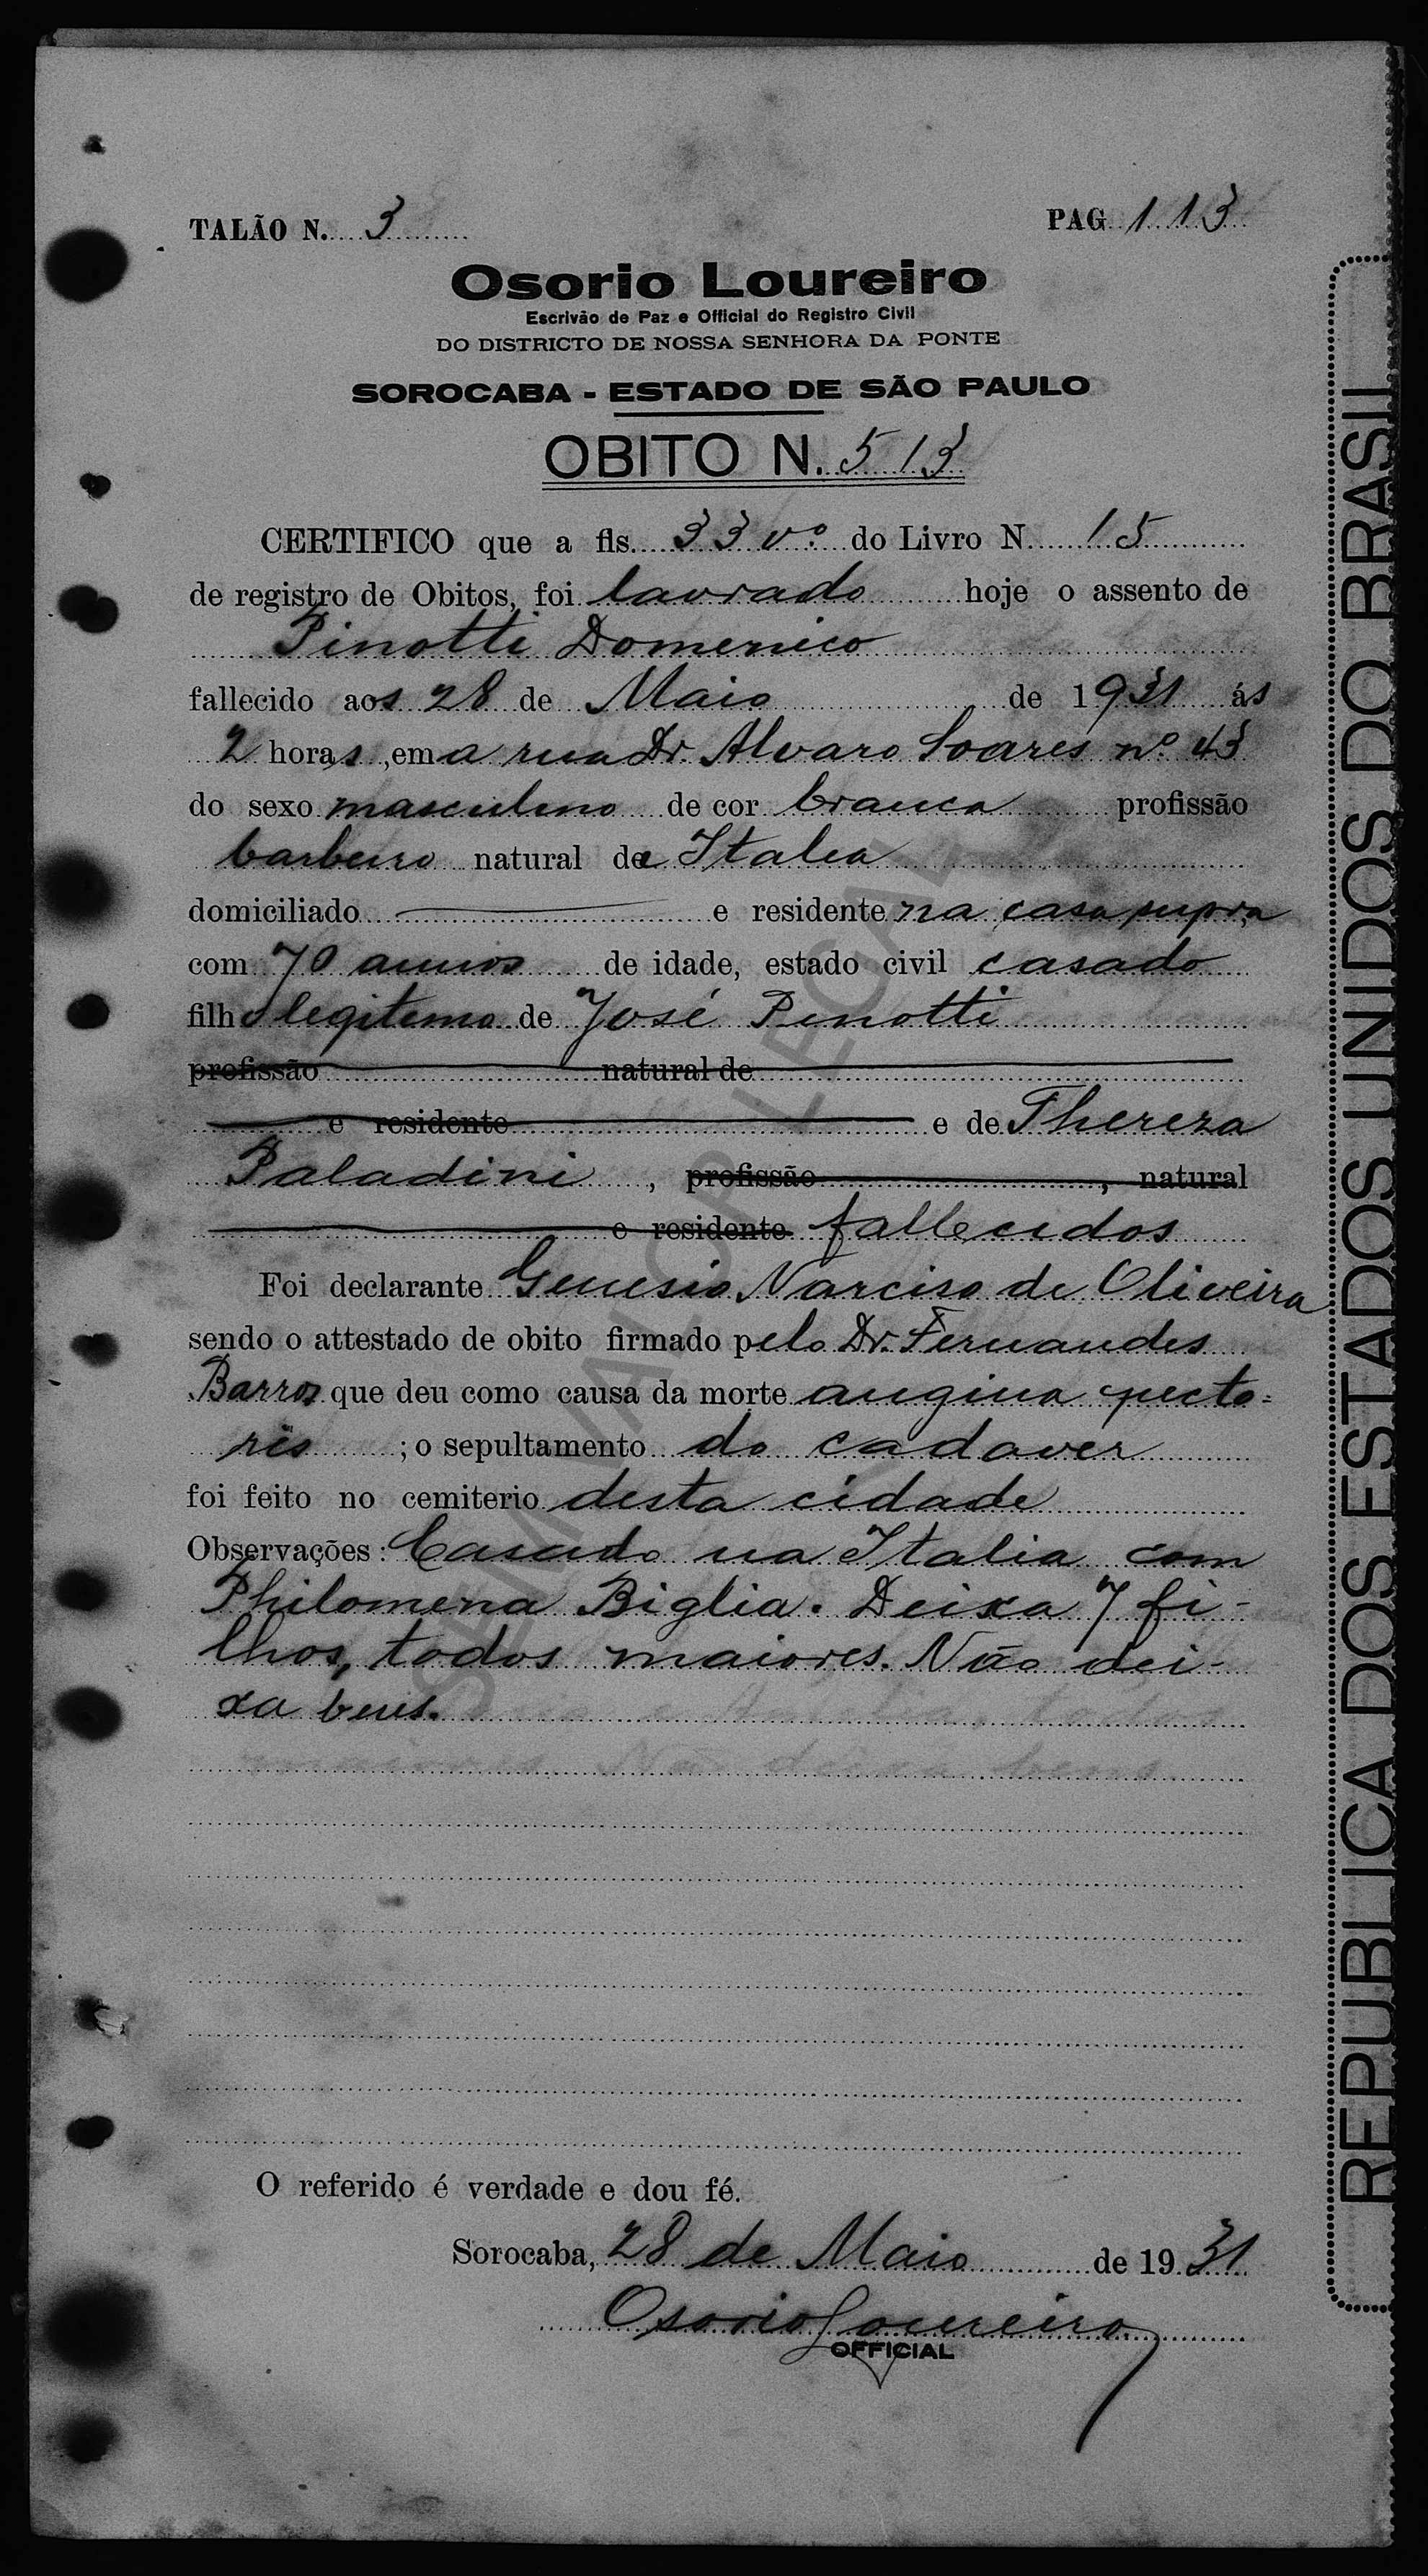 TALÃO N. 3 PAG 113
Osorio Loureiro
Escrivão de Paz e Official do Registro Civil
DO DISTRICTO DE NOSSA SENHORA DA PONTE
SOROCABA - ESTADO DE SÃO PAULO
OBITO N. 513
CERTIFICO que a fls. 33 vº do Livro N. 15
de registro de Obitos, foi lavrado hoje o assento de
Pinotti Domenico
fallecido aos 28 de Maio de 1931 ás
2 horas, em a rua Dr. Alvaro Soares nº 43
do sexo masculino de cor branca profissão
barbeiro natural da Italia
domiciliado e residente na casa supra,
com 70 annos de idade, estado civil casado
filho legitimo de José Pinotti
profissão natural de
e residente e de Thereza
Paladini, profissão, natural
e residente fallecidos
Foi declarante Genesio Narciso de Oliveira
sendo o attestado de obito firmado pelo Dr. Fernandes
Barros que deu como causa da morte angina pecto=
ris ; o sepultamento do cadaver
foi feito no cemiterio desta cidade
Observações: Casado na Italia com
Philomena Biglia. Deixa 7 fi-
lhos, todos maiores. Não dei-
xa bens.
O referido é verdade e dou fé.
Sorocaba, 28 de Maio de 1931
Osorio Loureiro
OFFICIAL
REPUBLICA DOS ESTADOS UNIDOS DO BRASIL
SEM VALOR LEGAL